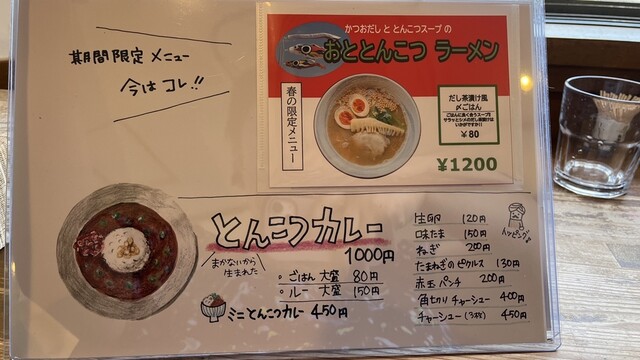 期間限定メニュー
今はコレ!!
かつおだし と とんこつスープ の
おととんこつ ラーメン
春の限定メニュー
だし茶漬け風
〆ごはん
ごはんに良く合うスープ!
サラッとシメのだし茶漬けは
いかがですか!!
¥80
¥1200
とんこつカレー
1000円
まかないから
生まれた
○ごはん 大盛 80円
○ルー 大盛 150円
ミニとんこつカレー 450円
トッピング
生卵 120円
味たま 150円
ねぎ 200円
たまねぎのピクルス 130円
赤玉パンチ 200円
角切りチャーシュー 400円
チャーシュー(3枚) 450円